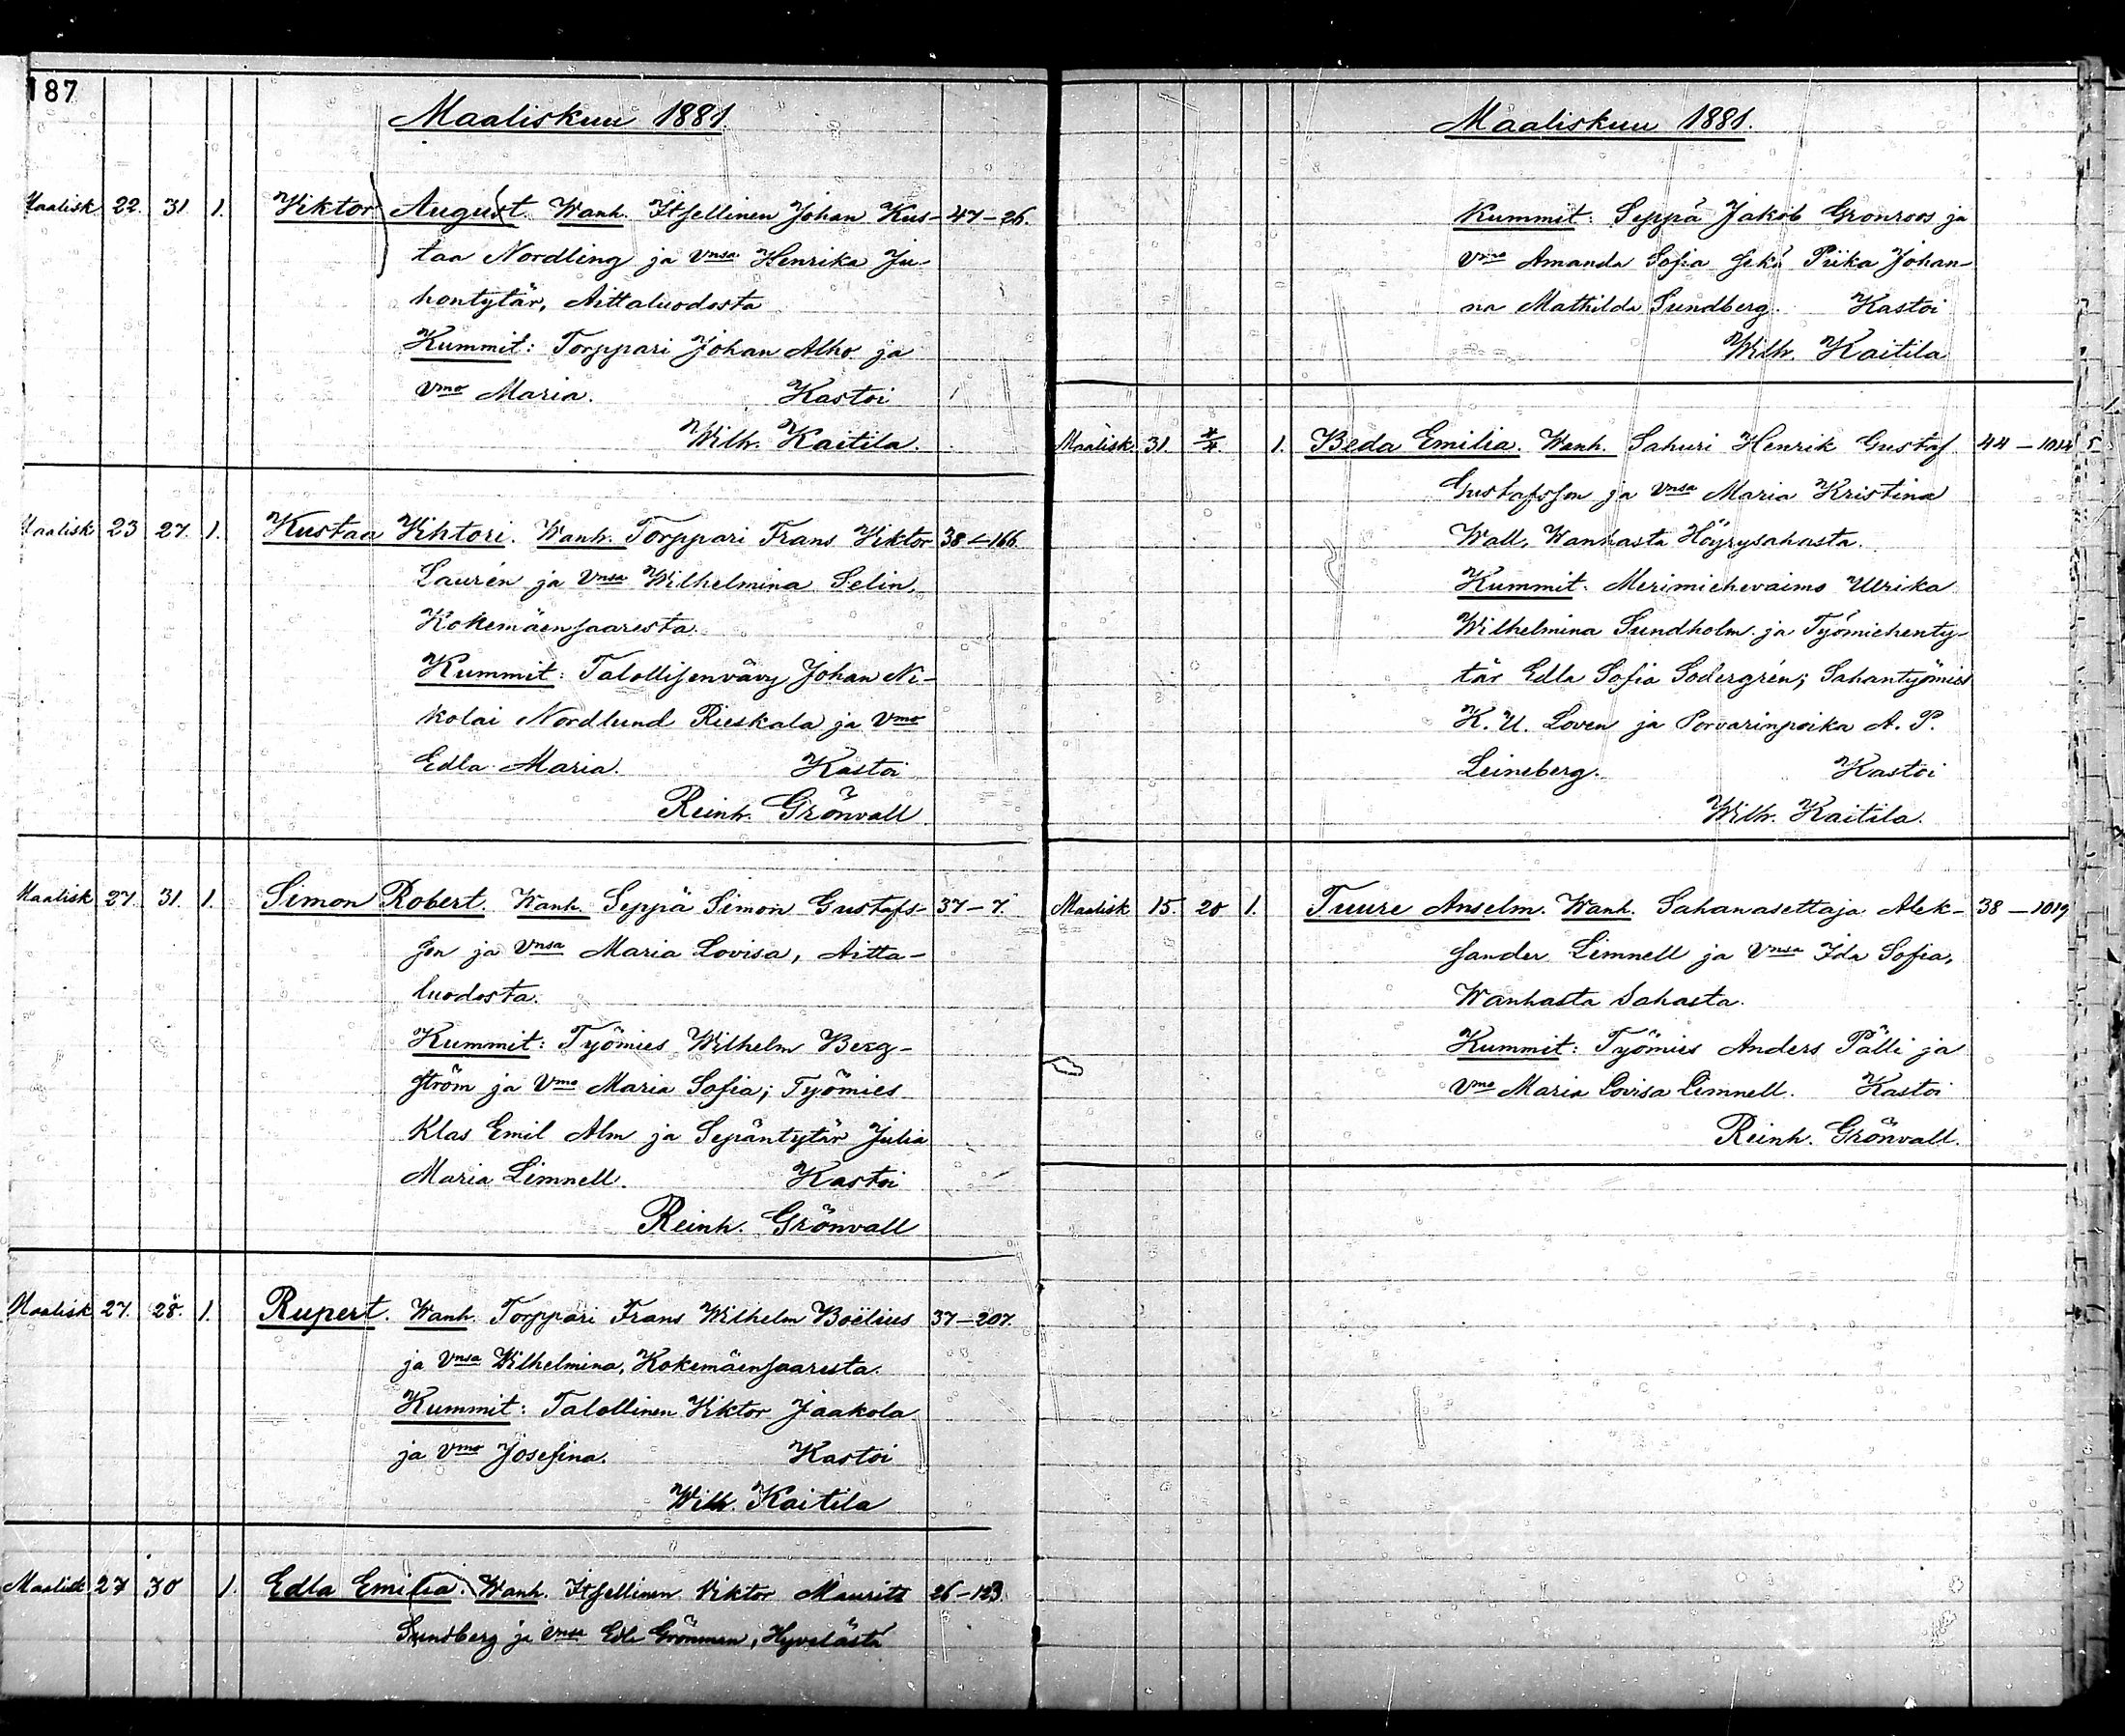 187
Maaliskuu 1881.
Maalisk 22. 31. 1. Viktor August. Wanh. Itsellinen Johan Kus- 47-26.
taa Nordling ja Vnsa Henrika Ju-
hontytär, Aittaluodosta
Kummit: Torppari Johan Alho ja
Vmo Maria. Kastoi
Wilh. Kaitila.
Maalisk 23 27. 1. Kustaa Vihtori. Wanh. Torppari Frans Viktor 38-166.
Laurén ja Vnsa Wilhelmina Selin,
Kokemäensaaresta.
Kummit: Talollisenvävy Johan Ni-
kolai Nordlund Rieskala ja Vmo
Edla Maria. Kastoi
Reinh. Grönvall
Maalisk 27 31. 1. Simon Robert. Wanh. Seppä Simon Gustafs- 37-7.
son ja Vnsa Maria Lovisa, Aitta-
luodosta.
Kummit: Työmies Wilhelm Berg-
ström ja Vmo Maria Sofia; Työmies
Klas Emil Alm ja Sepäntytär Julia
Maria Limnell. Kastoi
Reinh. Grönvall
Maalisk 27. 28. 1. Rupert. Wanh. Torppari Frans Wilhelm Boëlius 37-207.
ja Vnsa Wilhelmina, Kokemäensaaresta.
Kummit: Talollinen Viktor Jaakola
ja Vmo Josefina. Kastoi
Wilh. Kaitila
Maalisk 27 30 1. Edla Emilia. Wanh. Itsellinen Viktor Maurits 26-123.
Sundberg ja Vnsa Edla Grönman, Hyvelästä
Maaliskuu 1881.
Kummit: Seppä Jakob Gronroos ja
Vmo Amanda Sofia Piika Johan-
na Mathilda Sundberg. Kastoi
Wilh. Kaitila
Maalisk. 31. 4/4. 1. Beda Emilia. Wanh. Sahuri Henrik Gustaf 44-
Gustafsson ja Vnsa Maria Kristina
Wall, Wanhasta Höyrysahasta.
Kummit: Merimiehevaimo Ulrika
Wilhelmina Sundholm ja Työmiehenty-
tär Edla Sofia Sodergrén; Sahantyömies
K. U. Loven ja Porvarinpoika A. P.
Leineberg. Kastoi
Wilh. Kaitila.
Maalisk 15. 20 1. Tuure Anselm. Wanh. Sahanasettaja Alek- 38-1019
sander Limnell ja Vnsa Ida Sofia,
Wanhasta Sahasta.
Kummit: Työmies Anders Pälli ja
Vmo Maria Lovisa Limnell. Kastoi
Reinh. Grönvall.